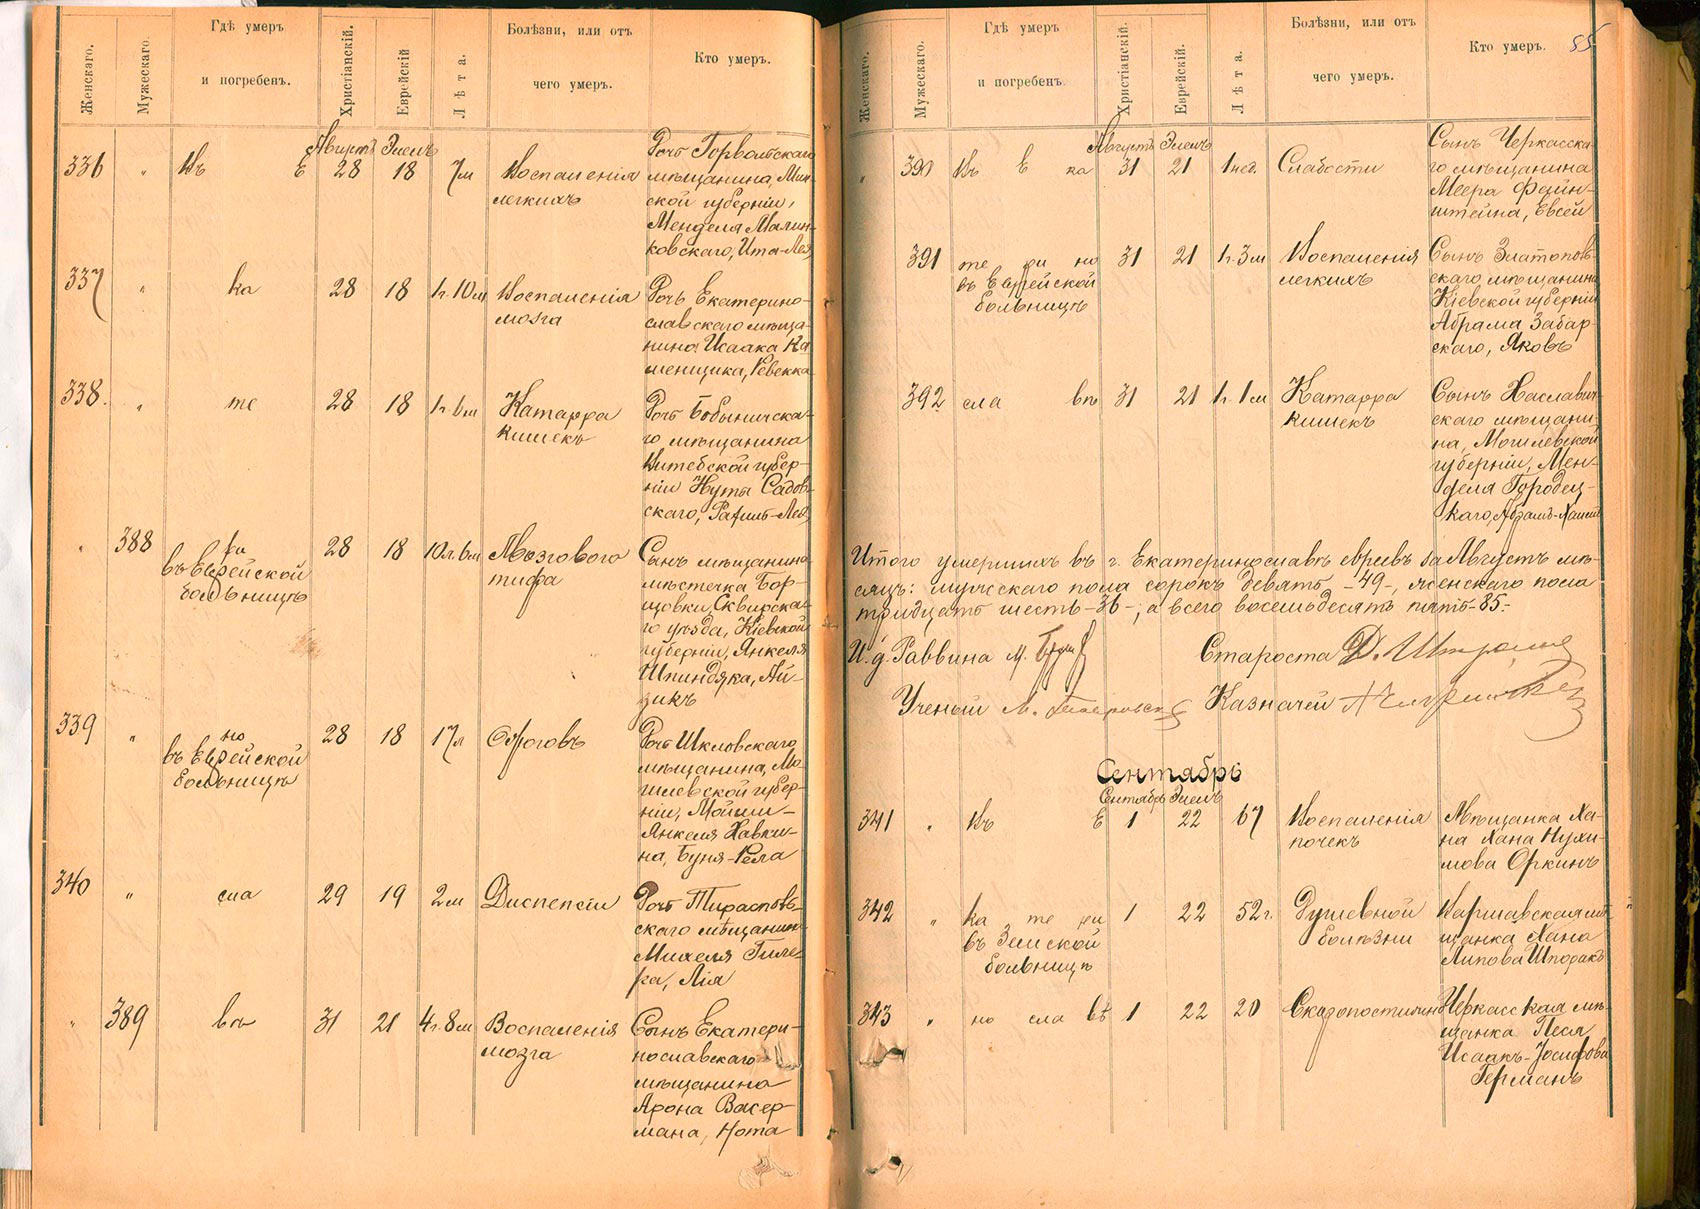 Женскаго.
Мужескаго.
Гдѣ умеръ
и погребенъ.
Христіанскій.
Еврейскій
Лѣта.
Болѣзни, или отъ
чего умеръ.
Кто умеръ.
Августъ Элелъ
336 " Въ Е 28 18 7м Воспаленія
легкихъ
Дочь Горвальскаго
мѣщанина, Мин-
ской губерніи,
Менделя Малин-
ковскаго, Ита-Лея
337 " ка 28 18 1г.10м Воспаленія
мозга
Дочь Екатерино-
славскаго мѣща-
нина Исаака Ка
менщика, Ревекка
338. " те 28 18 1г.6м Катарра
кишекъ
Дочь Бобыничска-
го мѣщанина
Витебской губер-
ніи Нуты Садов-
скаго, Рахиль-Лея
" 388 ри
въ Еврейской
больницѣ
28 18 10л.6м Мозгового
тифа
Сынъ мѣщанина
мѣстечка Бор-
щовки, Сквирска-
го уѣзда, Кіевской
губерніи, Янкеля
Шпиндяка, Ай-
зикъ
339 " но
въ Еврейской
больницѣ
28 18 17л Ожоговъ
Дочь Шкловскаго
мѣщанина, Мо-
гилевской губер-
ніи, Мойши-
Янкеля Хавки-
на, Буня-Рела
340 " сла 29 19 2м Диспепсіи
Дочь Тирасполь-
скаго мѣщанин
Михеля Гиле-
ра, Лія
" 389 вѣ 31 21 4г.8м Воспаленія
мозга
Сынъ Екатери-
нославскаго
мѣщанина
Арона Васер-
мана, Нота
55
Женскаго.
Мужескаго.
Гдѣ умеръ
и погребенъ.
Христіанскій.
Еврейскій.
Лѣта.
Болѣзни, или отъ
чего умеръ.
Кто умеръ.
Августъ Элелъ
" 390 Въ Е ка 31 21 1нед. Слабости
Сынъ Черкасска-
го мѣщанина
Меера Файн-
штейна, Евсей
391 те ри но
въ Еврейской
больницѣ
31 21 1г.3м Воспаленія
легкихъ
Сынъ Златополь-
скаго мѣщанина
Кіевской губерніи
Абрама Забар-
скаго, Яковъ
392 сла вѣ 31 21 1г.1м Катарра
кишекъ
Сынъ Хаславич-
скаго мѣщани-
на, Могилевской
губерніи, Мен-
деля Городец-
каго, Абрамъ-Хаимъ
Итого умершихъ въ г. Екатеринославѣ евреевъ за Августъ мѣ-
сяцъ: мужескаго пола сорокъ девять -49-, женскаго пола
тридцать шесть -36-, а всего восемьдесятъ пять -85.-
И.д. Раввина М.
Староста Д.
Ученый М.
Казначей
Сентябрь
Сентябрь Элелъ
341 " Въ Е 1 22 67 Воспаленія
почекъ
Мѣщанка Ха-
на Хана Нухи-
мова Оркинъ
342 " ка те ри
въ Земской
больницѣ
1 22 52г. Душевной
болѣзни
Варшавская мѣ-
щанка Хана
Липова Шпоракъ
343 " но сла вѣ 1 22 20 Скоропостижно
Черкасская мѣ-
щанка Песя
Исаакъ-Іосифова
Германъ